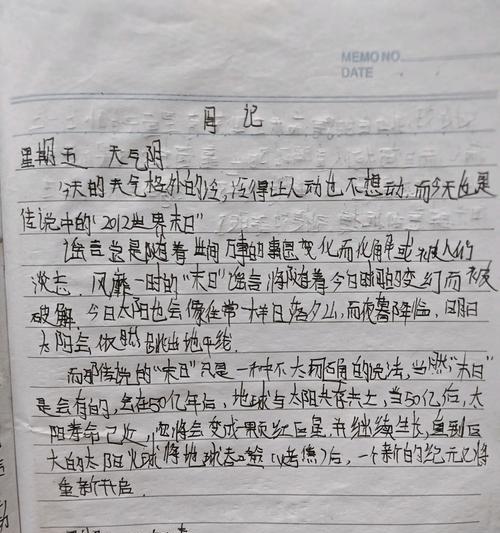 MEMO NO.
DATE
日记
星期五 天气阴
今天的天气格外的冷,冷得让人动也不想动.而今天也是
传说中的“2012世界末日”
谣言总是随着世间万事的事态变化而化解或被人们
淡忘.风靡一时的“末日”谣言将随着今日时间的变幻而被
破解.今日太阳也会像往常一样日落夕山,而夜幕降临,明日
太阳会依然跳出地平线.
而那传说的“末日”只是一种不太确的说法,当然“末日”
是会有的,会在50亿年后,地球与太阳共存共亡,当50亿后,太
阳寿命已近,将会变成颗红巨星.并继续生长,直到巨
大的太阳火球将地球吞噬(烤焦)后,一个新的纪元将
重新开启.